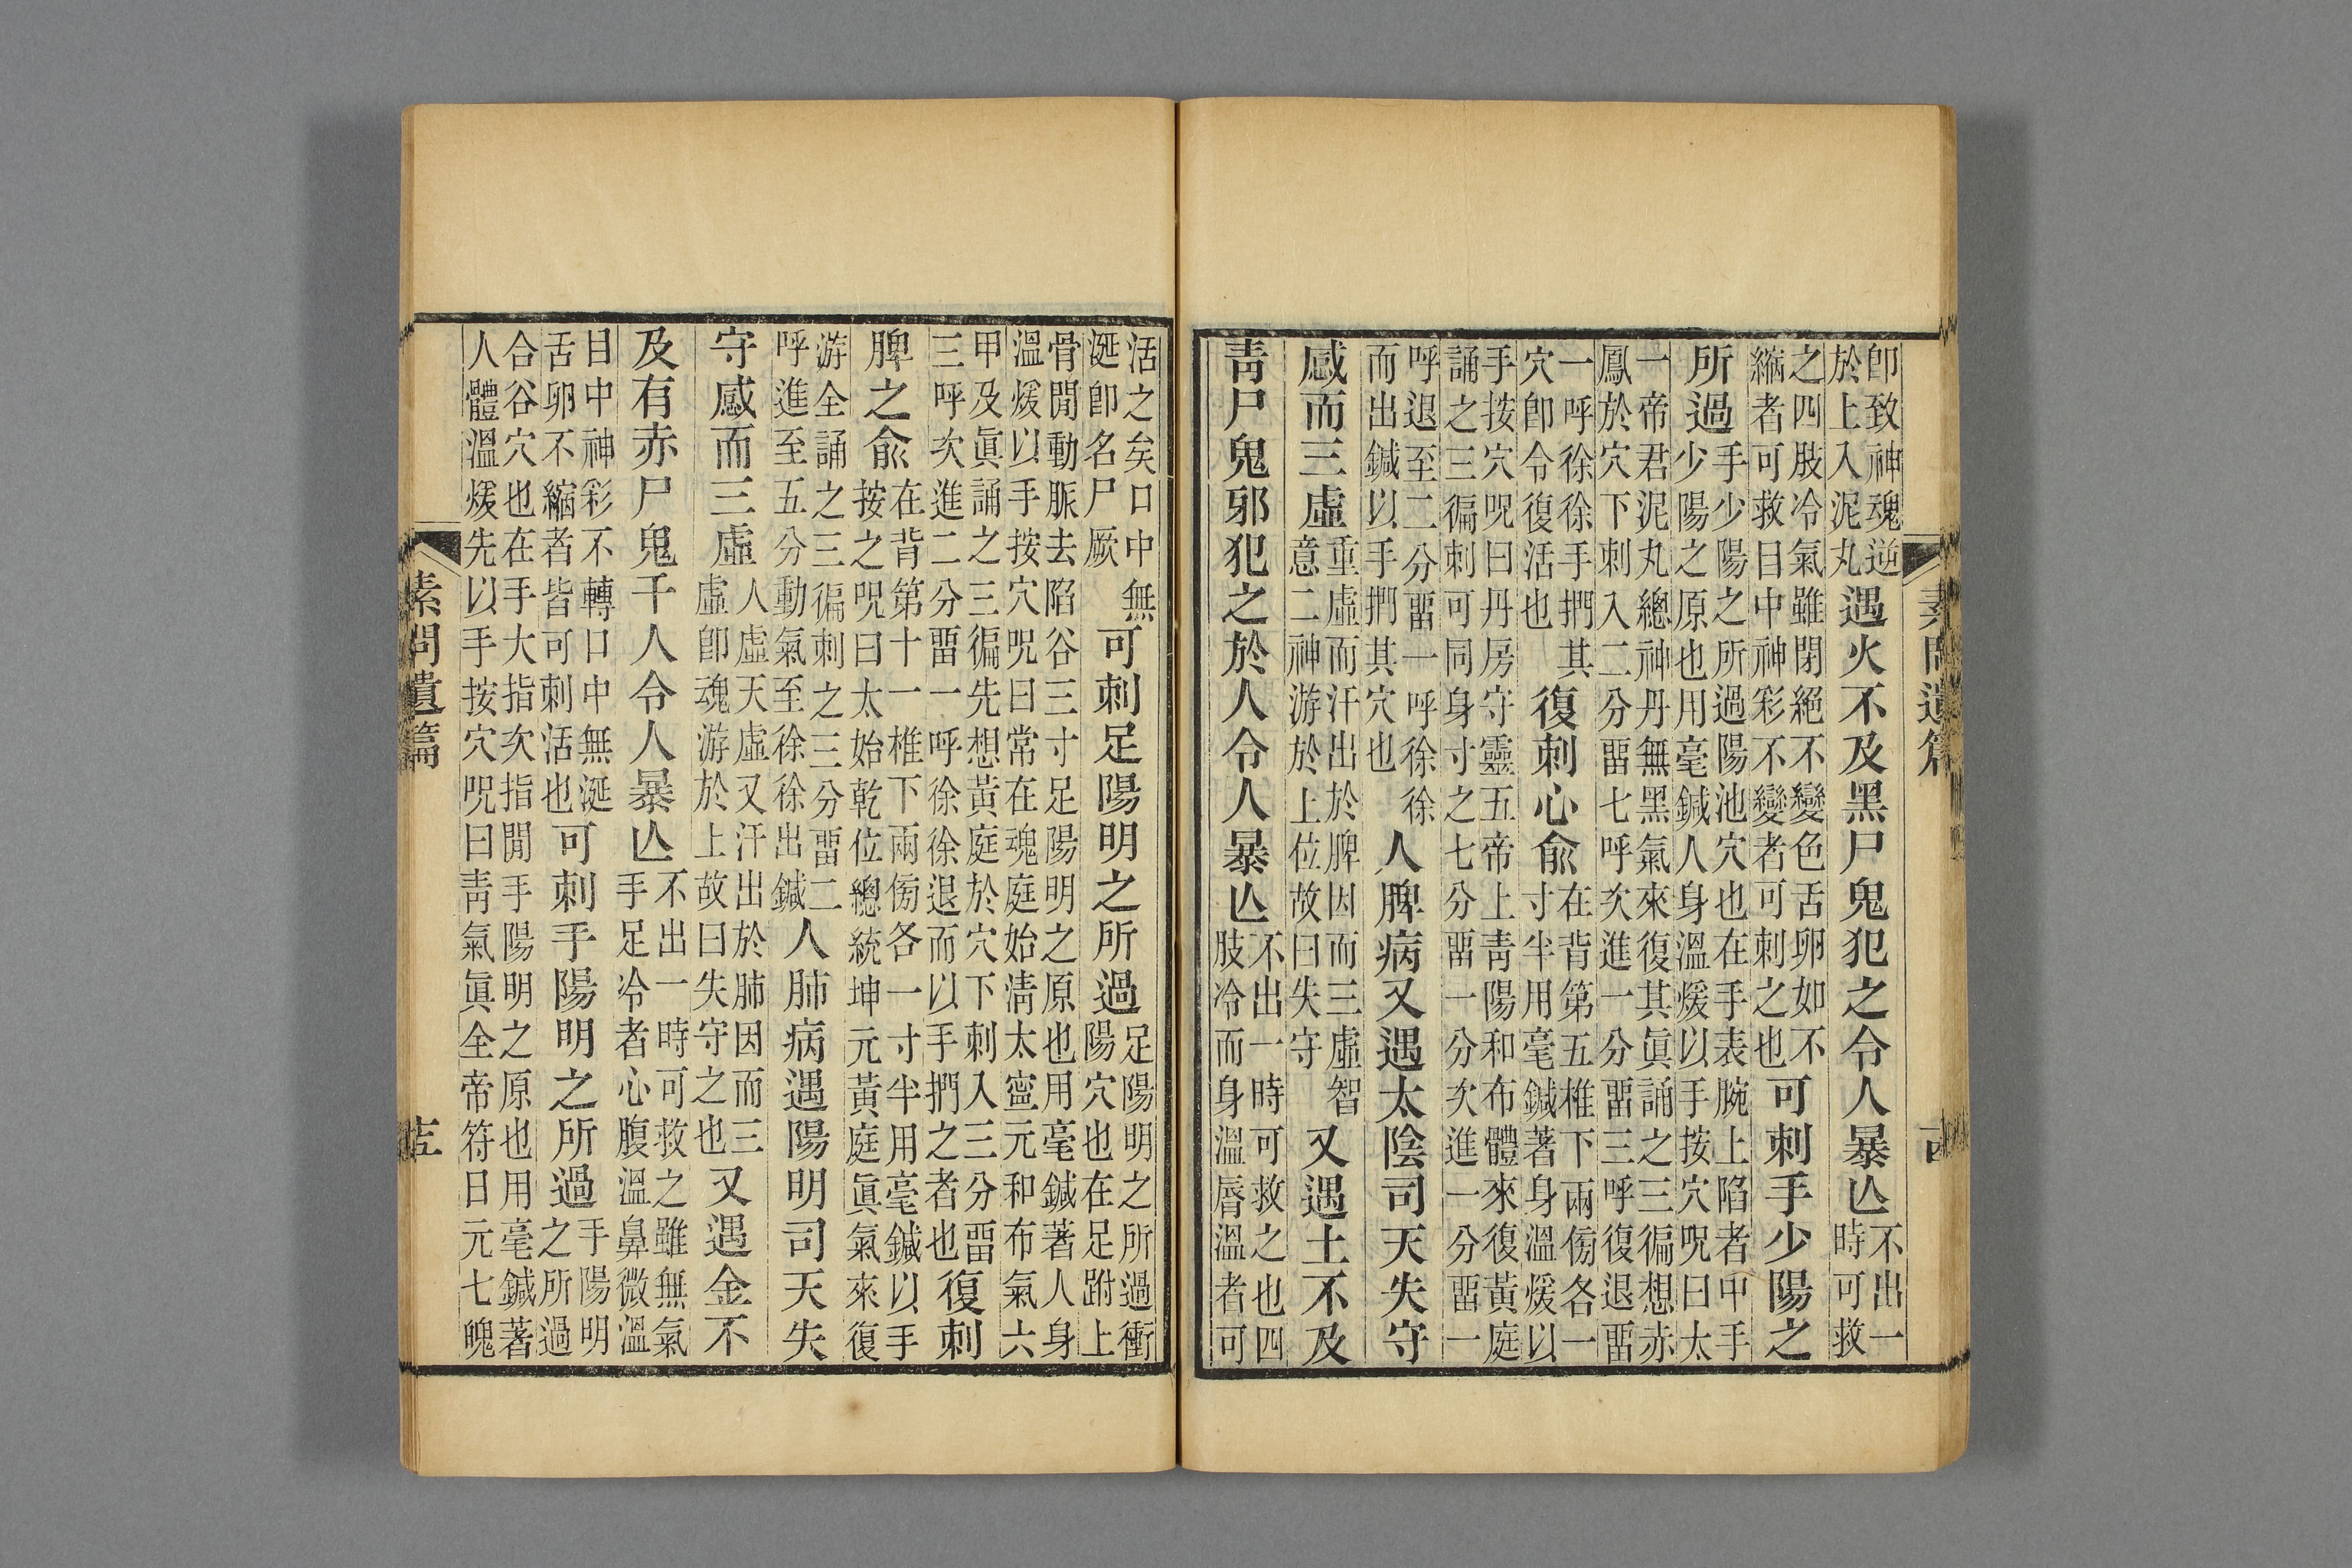 即致神魂逆
於上入泥丸
遇火不及黑尸鬼犯之令人暴亾
不出一
時可救
之四肢冷氣雖閉絕不變色舌卵如不
縮者可救目中神彩不變者可刺之也
可刺手少陽之
所過
手少陽之所過陽池穴也在手表腕上陷者中手
少陽之原也用毫鍼人身溫煖以手按穴呪曰太
一帝君泥丸總神丹無黑氣來復其眞誦之三徧想赤
鳳於穴下刺入二分畱七呼次進一分畱三呼復退畱
一呼徐徐手捫其
穴即令復活也
復刺心俞
在背第五椎下兩傍各一
寸半用毫鍼著身溫煖以
手按穴呪曰丹房守靈五帝上靑陽和布體來復黃庭
誦之三徧刺可同身寸之七分畱一分次進一分畱一
呼退至二分畱一呼徐徐
而出鍼以手捫其穴也
人脾病又遇太陰司天失守
感而三虛
重虛而汗出於脾因而三虛智
意二神游於上位故曰失守
又遇土不及
靑尸鬼邪犯之於人令人暴亾
不出一時可救之也四
肢冷而身溫脣溫者可
活之矣口中無
涎即名尸厥
可刺足陽明之所過
足陽明之所過衝
陽穴也在足跗上
骨閒動脈去陷谷三寸足陽明之原也用毫鍼著人身
溫煖以手按穴呪曰常在魂庭始淸太寧元和布氣六
甲及眞誦之三徧先想黃庭於穴下刺入三分畱
三呼次進二分畱一呼徐徐退而以手捫之者也
復刺
脾之俞
在背第十一椎下兩傍各一寸半用毫鍼以手
按之呪曰太始乾位總統坤元黃庭眞氣來復
游全誦之三徧刺之三分畱二
呼進至五分動氣至徐徐出鍼
人肺病遇陽明司天失
守感而三虛
人虛天虛又汗出於肺因而三
虛即魂游於上故曰失守之也
又遇金不
及有赤尸鬼干人令人暴亾
不出一時可救之雖無氣
手足冷者心腹溫鼻微溫
目中神彩不轉口中無涎
舌卵不縮者皆可刺活也
可刺手陽明之所過
手陽明
之所過
合谷穴也在手大指次指閒手陽明之原也用毫鍼著
人體溫煖先以手按穴呪曰靑氣眞全帝符日元七魄
素問遺篇